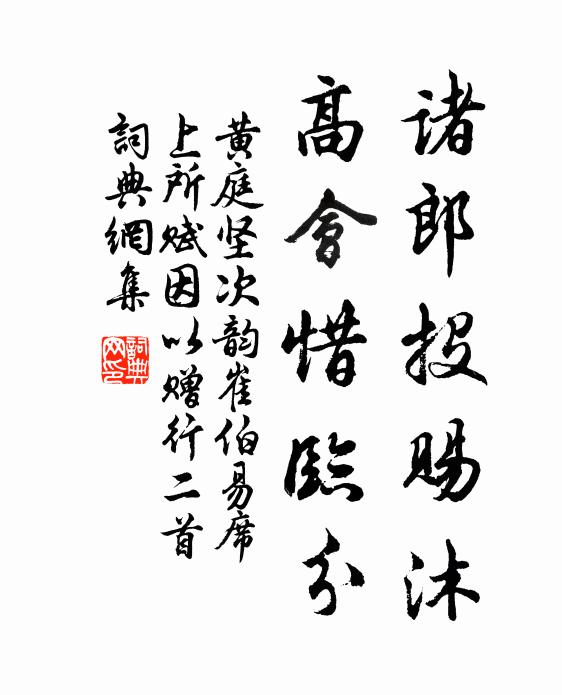 诸郎投赐沐
高會惜臨分
黄庭坚次韵崔伯易席
上所赋因以赠行二首
詞典網集
詞典
网印